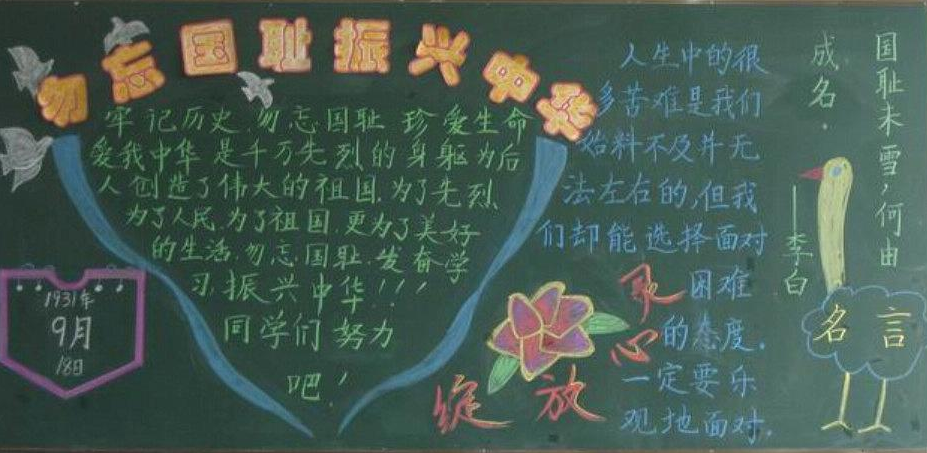 勿忘国耻振兴中华
牢记历史.勿忘国耻 珍爱生命
爱我中华 是千万先烈的身躯为后
人创造了伟大的祖国.为了先烈
为了人民.为了祖国.更为了美好
的生活.勿忘国耻.发奋学
习.振兴中华!!!
同学们努力
吧!
1931年
9月
18日
人生中的很
多苦难是我们
始料不及并无
法左右的,但我
们却能选择面对
困难
的态度.
一定要乐
观地面对.
心
绽放
国耻未雪,何由
成名.
——李白
名言